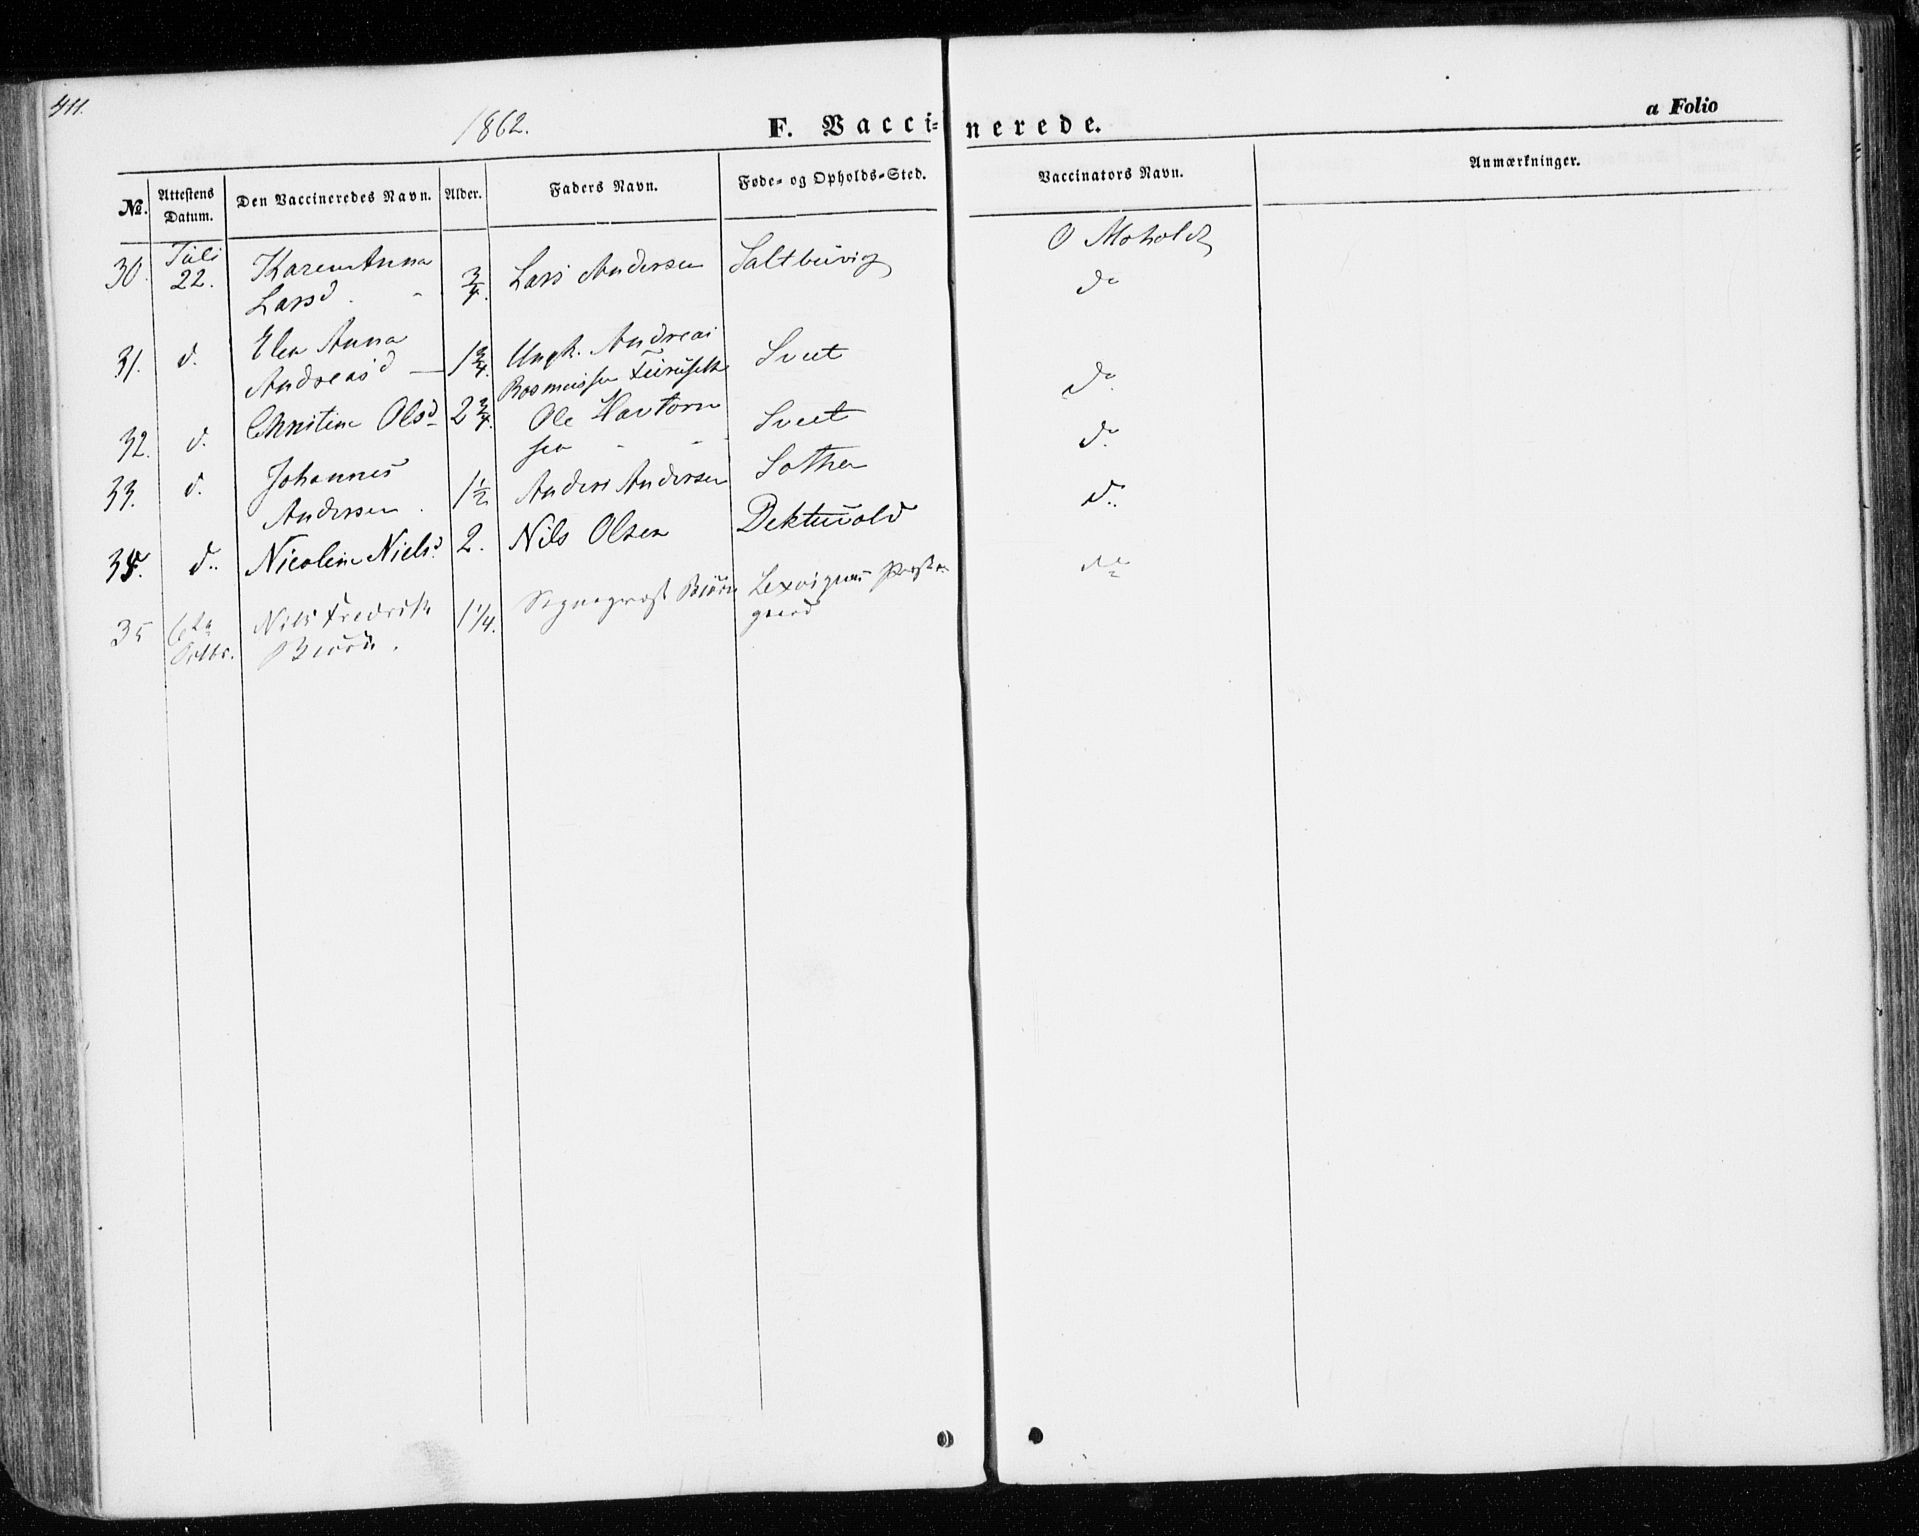 411.
1862.
F. Vacci-nerede.
a Folio
No. Attestens Datum. Den Vaccineredes Navn. Alder. Faders Navn. Føde- og Opholds-Sted. Vaccinators Navn. Anmærkninger.
30. Juli 22. Karen Anna Larsd. 3/4. Lars Andersen Saltbuvig O Moholdt
do
31. d. Elen Anna Andreasd 1 3/4. Ungk. Andreas Rasmussen Furuseth Sveet
do
32. d. Christine Olsd 2 3/4. Ole Havtorn sen Sveet
do
33. d. Johannes Andersen. 1 1/2 Anders Andersen Sothen
d..
34. d.. Nicoline Nielsd. 2. Nils Olsen Dektuvold
do
35 6te Octbr. Nils Fredrik Biörn. 1 1/4. Sogneprest Biörn Lexvigens Prest-gaard